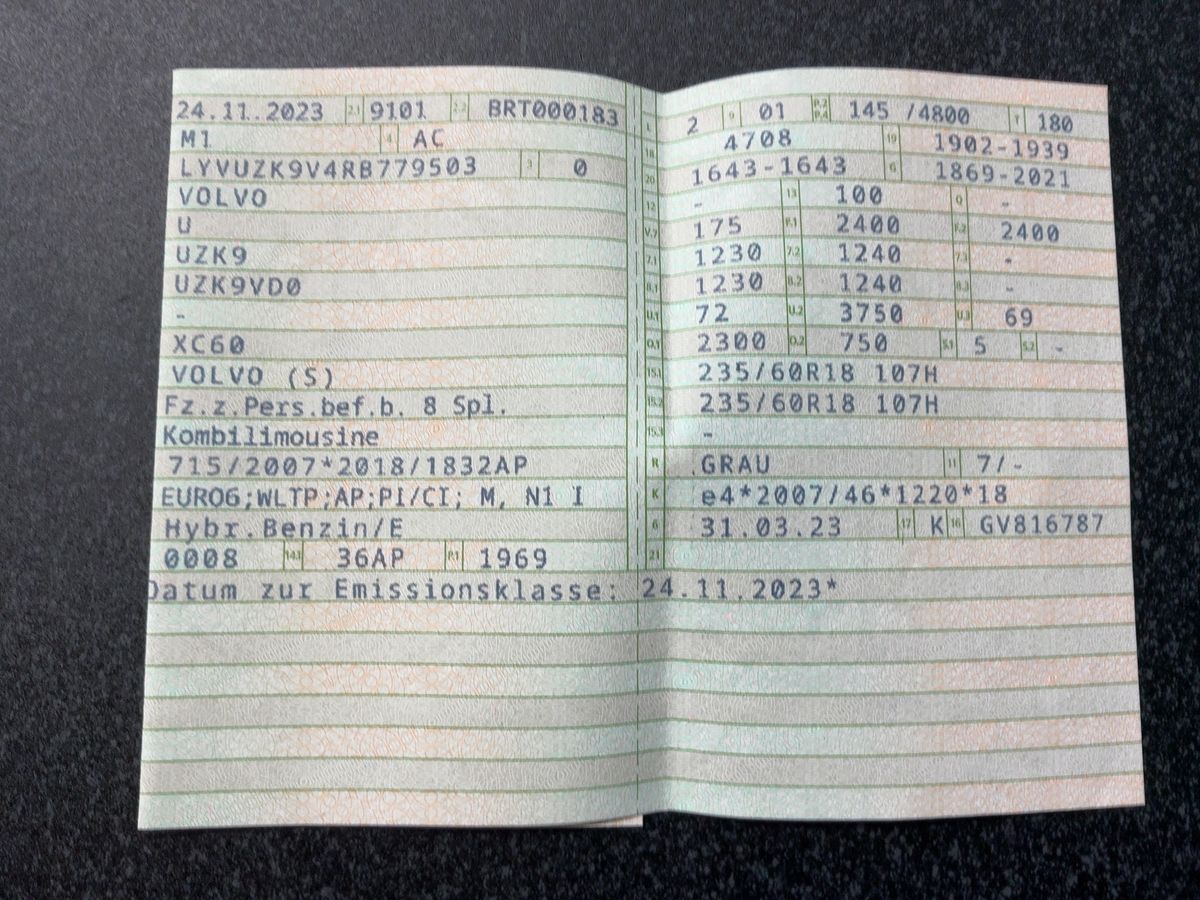 24.11.2023 2.1 9101 2.2 BRT000183
M1 4 AC
LYVUZK9V4RB779503 3 0
VOLVO
U
UZK9
UZK9VD0
-
XC60
VOLVO (S)
Fz.z.Pers.bef.b. 8 Spl.
Kombilimousine
715/2007*2018/1832AP
EURO6;WLTP;AP;PI/CI; M, N1 I
Hybr.Benzin/E
0008 14.1 36AP P.1 1969
L 2 9 01 P.2 P.4 145 /4800 T 180
18 4708 19 1902-1939
20 1643-1643 G 1869-2021
12 - 13 100 Q -
V.7 175 F.1 2400 F.2 2400
7.1 1230 7.2 1240 7.3 -
8.1 1230 8.2 1240 8.3 -
U.1 72 U.2 3750 U.3 69
O.1 2300 O.2 750 S.1 5 S.2 -
15.1 235/60R18 107H
15.2 235/60R18 107H
15.3 -
R GRAU 11 7/-
K e4*2007/46*1220*18
6 31.03.23 17 K 16 GV816787
21
Datum zur Emissionsklasse: 24.11.2023*